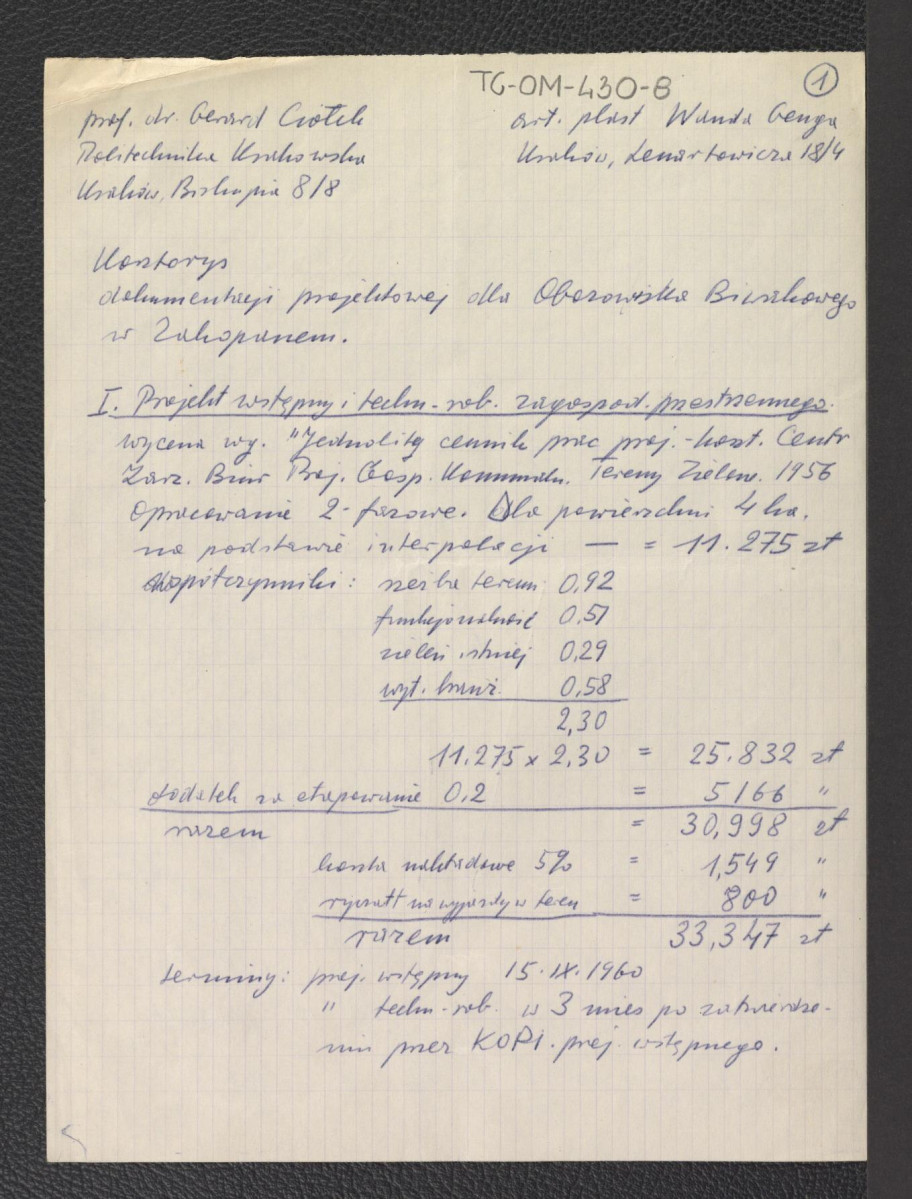 TG-OM-430-8
1
prof. dr. Gerard Ciołek
art. plast Wanda Genga
Politechnika Krakowska
Kraków, Lenartowicza 18/4
Kraków, Biskupia 8/8
Kosztorys
dokumentacji projektowej dla Obozowiska Biwakowego
w Zakopanem.
I. Projekt wstępny i techn-rob. zagospod. przestrzennego.
wycena wg. "Jednolity cennik prac proj.-koszt. Centr
Zarz. Biur Proj. Gosp. Komunaln. Tereny Zielone. 1956
Opracowanie 2-fazowe. Dla powierzchni 4 ha.
na podstawie interpolacji — = 11.275 zł
współczynniki: rzeźba terenu 0,92
funkcjonalność 0,51
zieleń istniej 0,29
wyt. kraw. 0,58
2,30
11.275 x 2,30 = 25.832 zł
dodatek za etapowanie 0,2 = 5166 "
razem = 30,998 zł
koszta nakładowe 5% = 1,549 "
ryczałt na wyjazdy w teren = 800 "
razem 33,347 zł
terminy: proj. wstępny 15.IX.1960
" techn-rob. w 3 mies po zatwierdze-
niu przez KOPI. proj. wstępnego.